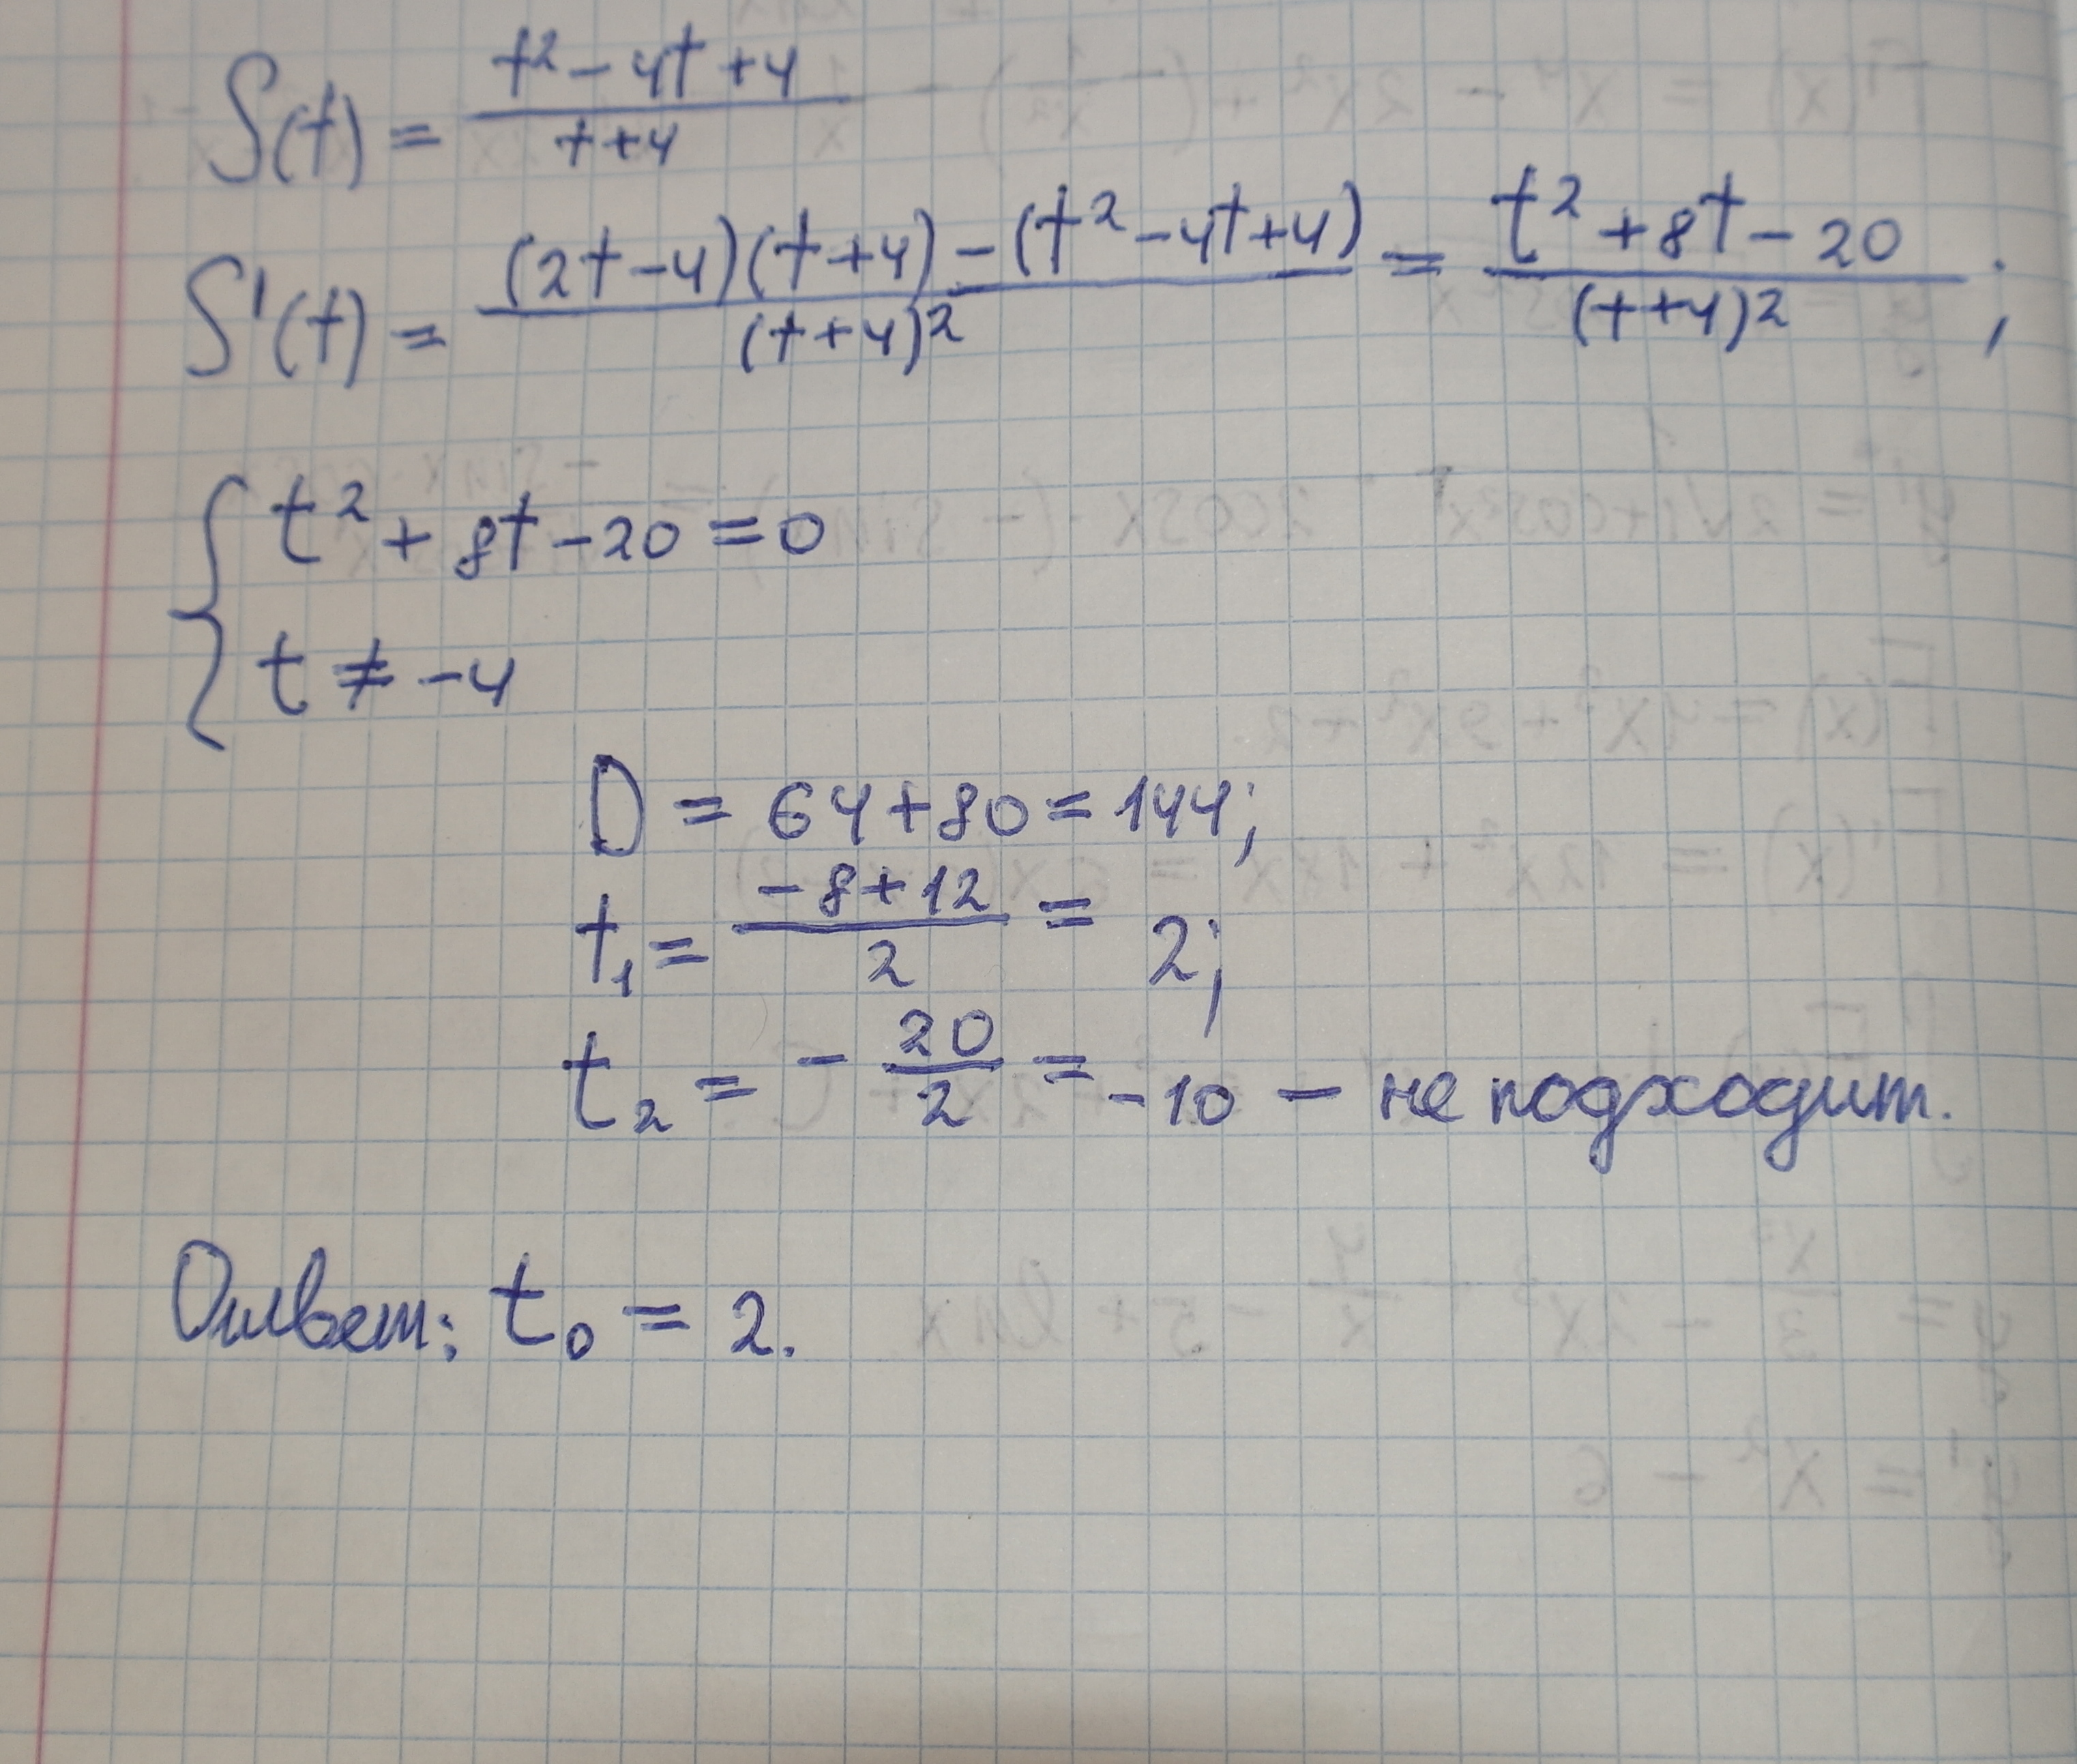 S(t) = (t² - 4t + 4)/(t + 4)
S'(t) = ((2t - 4)(t + 4) - (t² - 4t + 4))/(t + 4)² = (t² + 8t - 20)/(t + 4)²;
{ t² + 8t - 20 = 0
t ≠ -4
D = 64 + 80 = 144;
t₁ = (-8 + 12)/2 = 2;
t₂ = - 20/2 = -10 - не подходит.
Ответ: t₀ = 2.